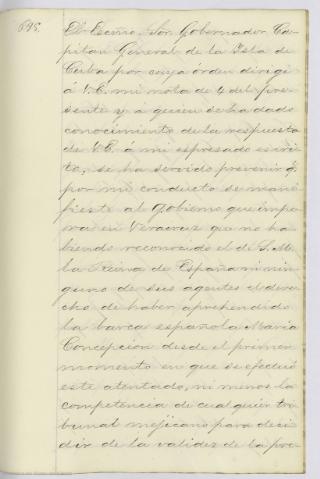 695.
El Escmo. Sor. Gobernador Ca-
pitan General de la Isla de
Cuba por cuya órden dirigí
á V.E. mi nota de 4 del pre-
sente y á quien se ha dado
conocimiento de la respuesta
de V.E. á mi espresado escri-
to, se ha servido prevenir q.
por mi conducto se mani-
fieste al Gobierno que impe-
ra en Veracruz que no ha-
biendo reconocido el de S. M.
la Reina de España ni nin-
guno de sus agentes el dere-
cho de haber aprehendido
la barca española Maria
Concepcion desde el primer
momento en que se efectuó
este atentado, ni menos la
competencia de cualquier tri-
bunal mejicano para deci-
dir de la validez de la pre-